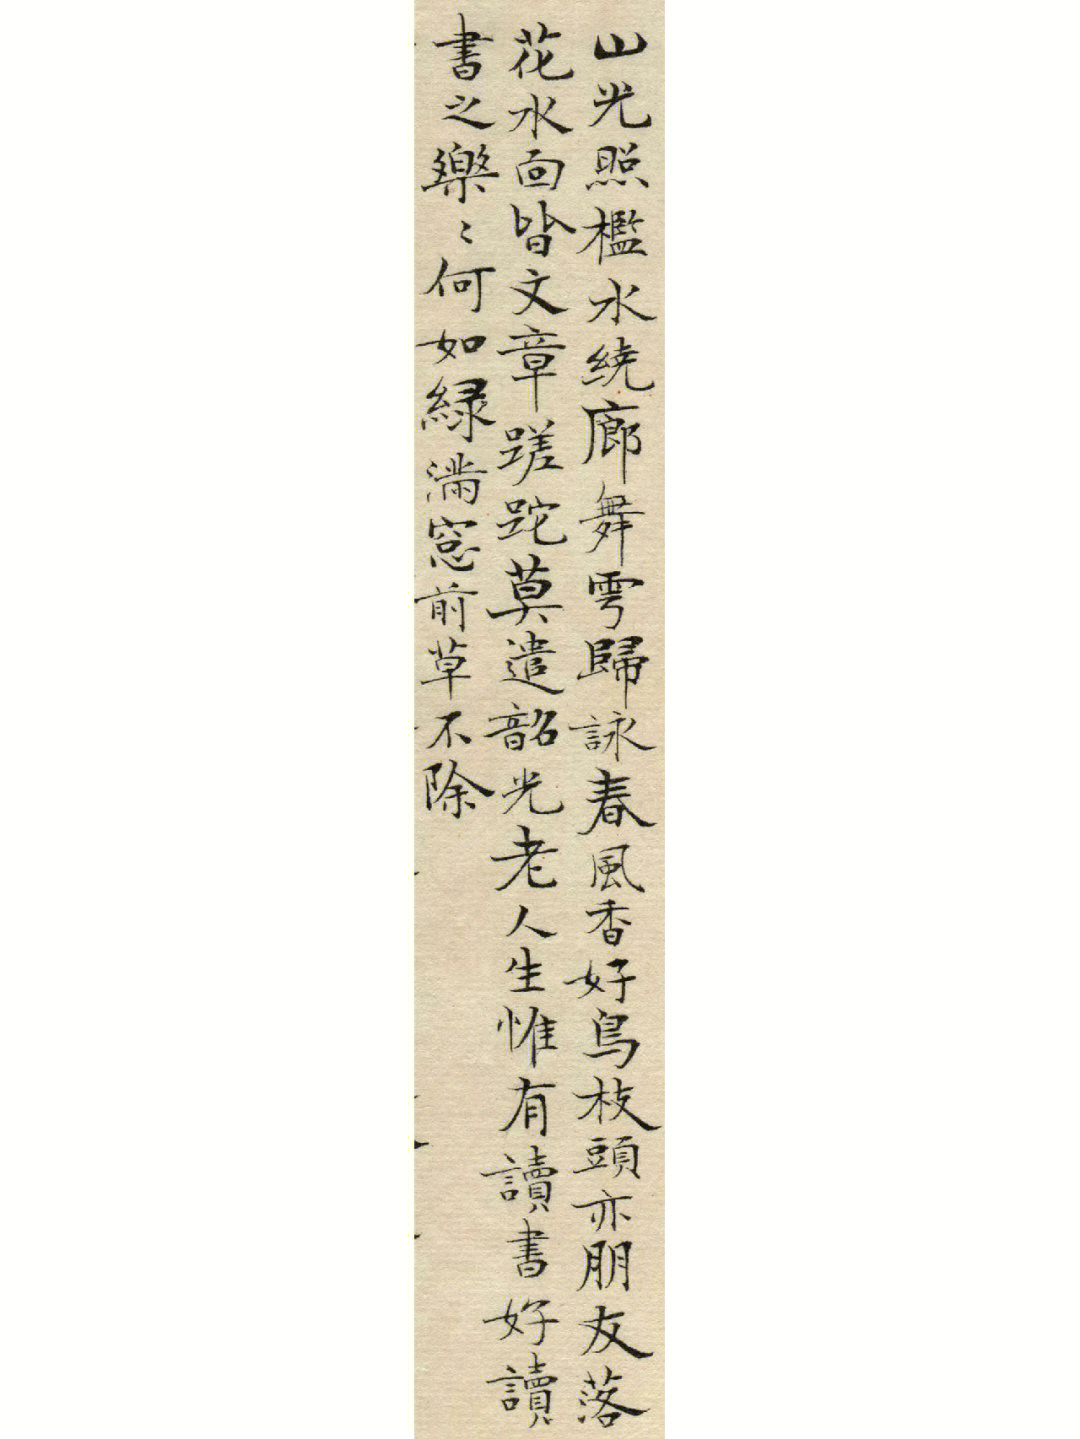 山光照檻水繞廊舞雩歸詠春風香好鳥枝頭亦朋友落
花水面皆文章蹉跎莫遣韶光老人生惟有讀書好讀
書之樂〻何如緑滿窓前草不除